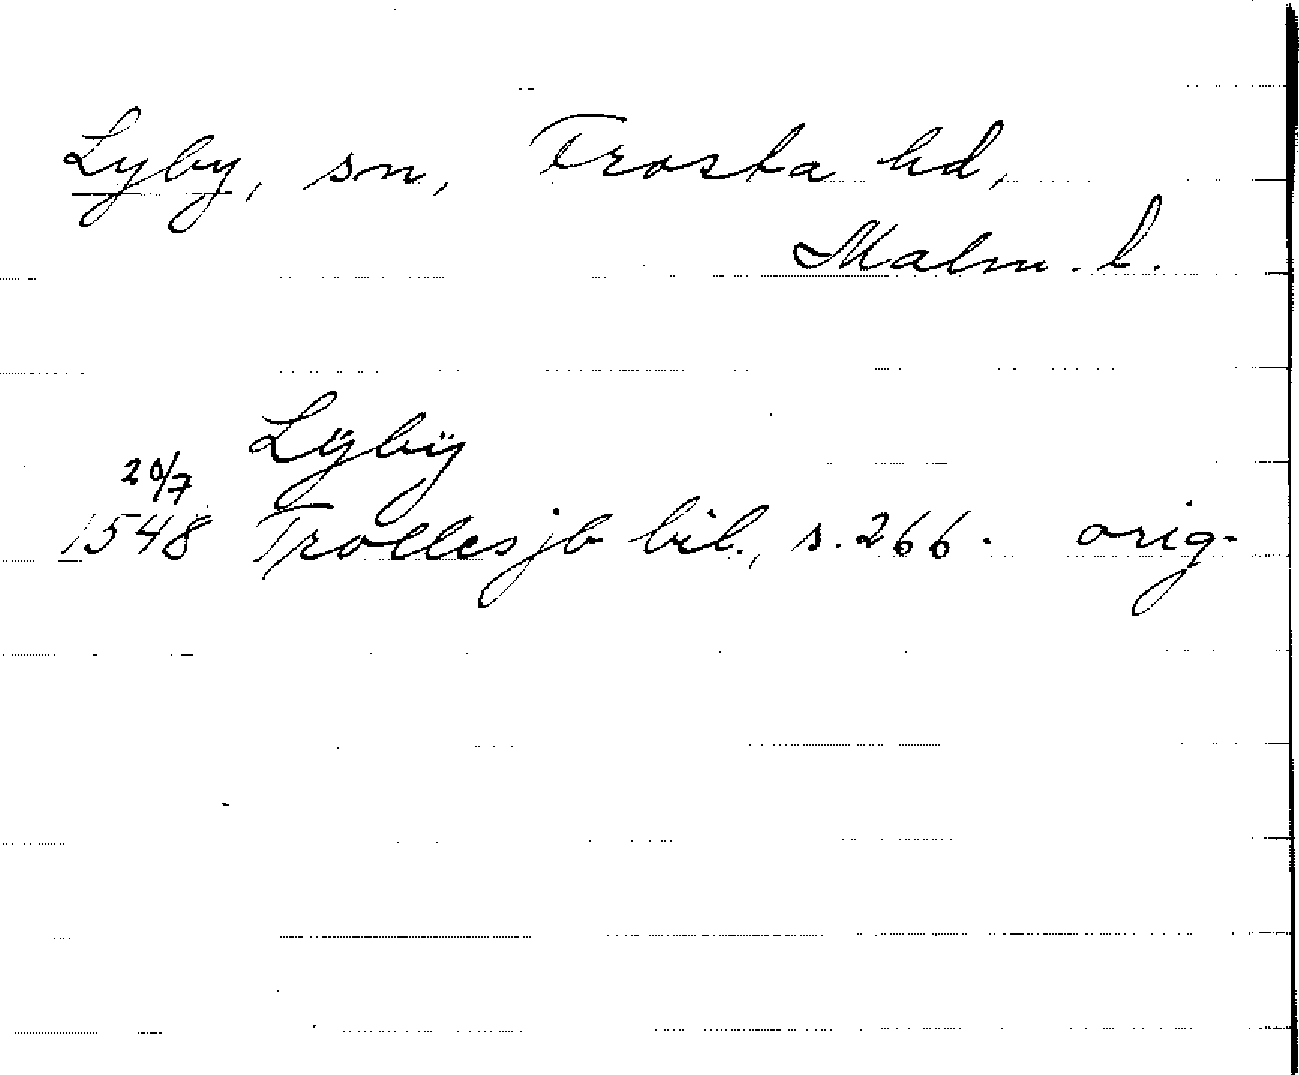 Lyby, sn, Frosta hd,
Malm. l.
Lÿbÿ
20/7
1548 Trolles jb bil., s. 266. orig.